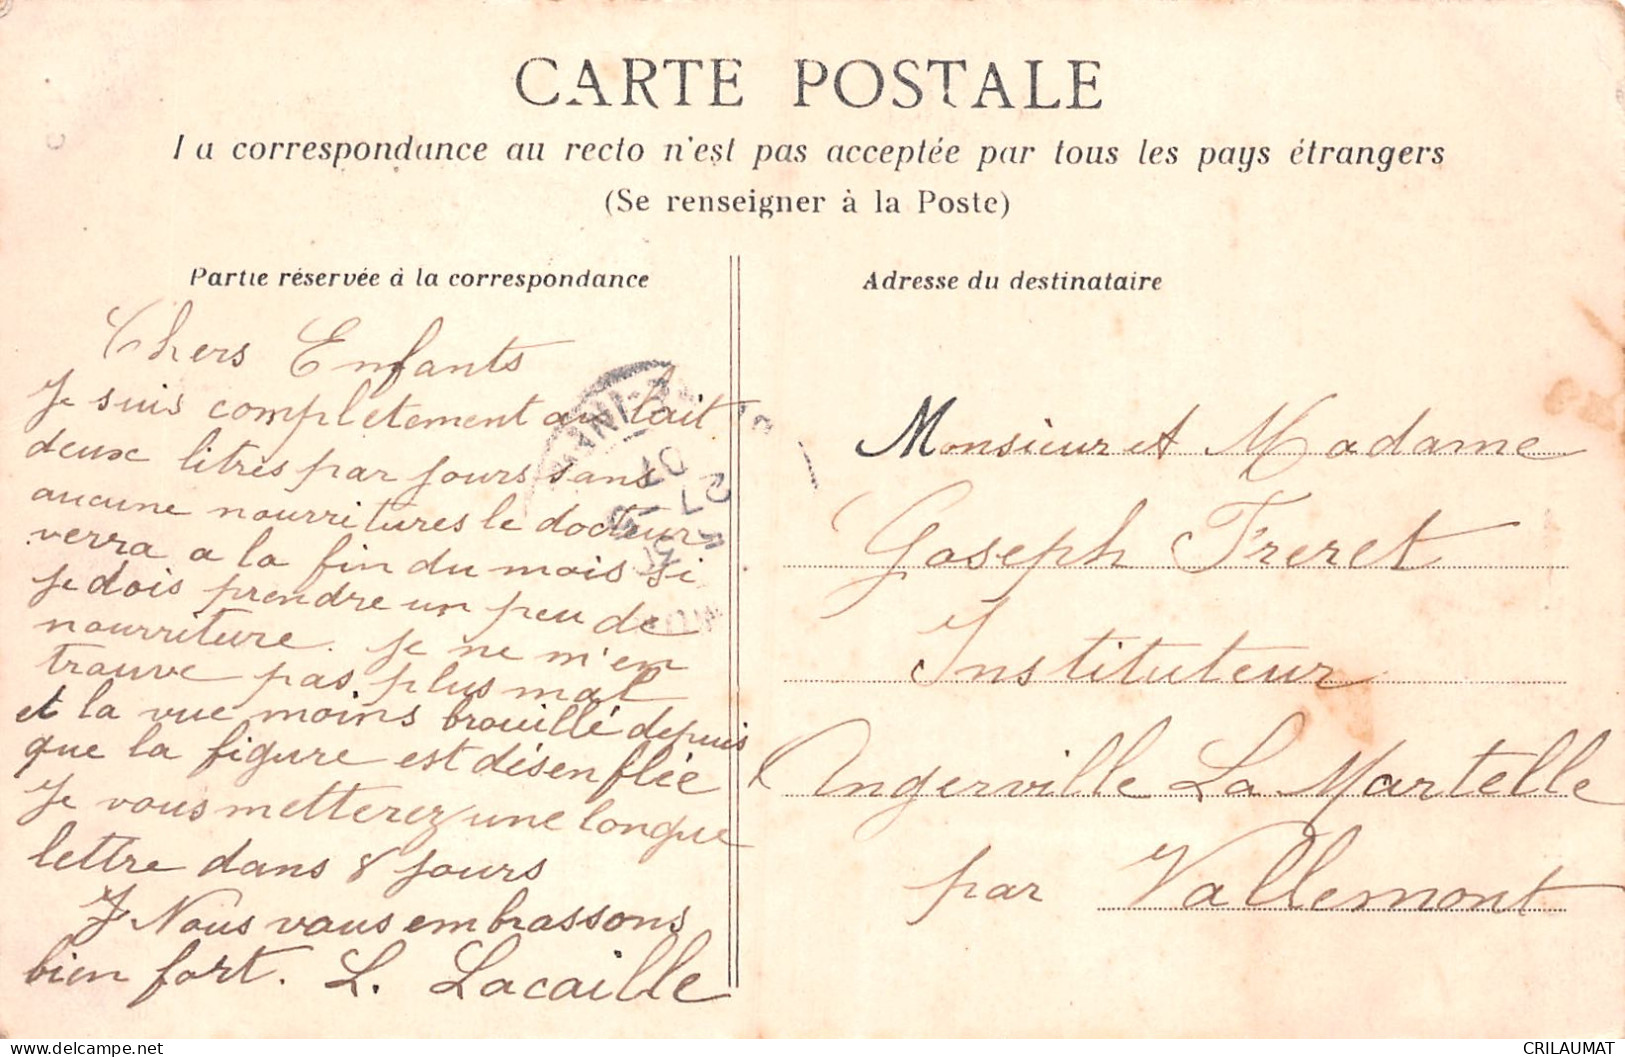 CARTE POSTALE
La correspondance au recto n'est pas acceptée par tous les pays étrangers
(Se renseigner à la Poste)
Partie réservée à la correspondance
Chers Enfants
Je suis completement au lait
deux litres par jours sans
aucune nourritures le docteur
verra a la fin du mois si
je dois prendre un peu de
nourriture. je ne m'en
trouve pas plus mal
et la vue moins brouillé depuis
que la figure est désenflée
Je vous metterez une longue
lettre dans 8 jours
Nous vous embrassons
bien fort. L. Lacaille
Adresse du destinataire
Monsieur et Madame
Joseph Freret
Instituteur
Angerville La Martelle
par Vallemont
07
CRILAUMAT